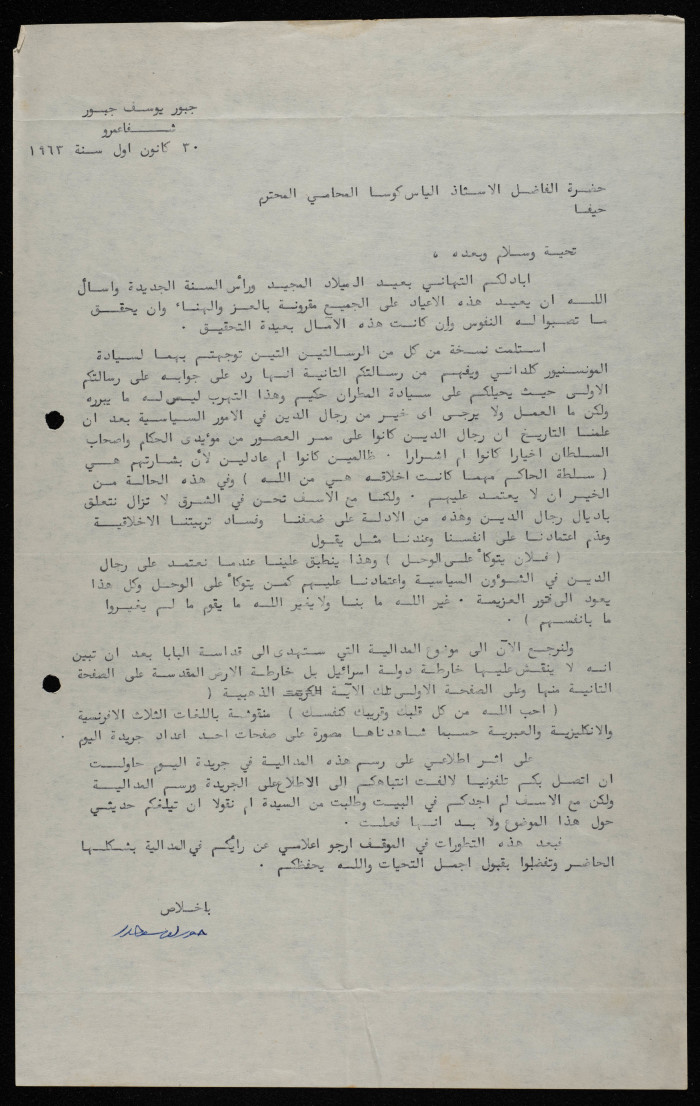 جبور يوسف جبور
شفاعمرو
٣٠ كانون اول سنة ١٩٦٣
حضرة الفاضل الاستاذ الياس كوسا المحامي المحترم
حيفا
تحية وسلام وبعده ،
ابادلكم التهاني بعيد الميلاد المجيد ورأس السنة الجديدة واسأل
اللـه ان يعيد هذه الاعياد على الجميع مقرونة بالعز والهناء وان يحقق
ما تصبوا له النفوس وان كانت هذه الآمال بعيدة التحقيق .
استلمت نسخة من كل من الرسالتين التين توجهتم بهما لسيادة
المونسنيور كلداني ويفهم من رسالتكم الثانية انها رد على جوابه على رسالتكم
الاولى حيث يحيلكم على سيادة المطران حكيم وهذا التهرب ليس له ما يبرره
ولكن ما العمل ولا يرجى اى خير من رجال الدين في الامور السياسية بعد ان
علمنا التاريخ ان رجال الدين كانوا على ممر العصور من مؤيدى الحكام واصحاب
السلطان اخيارا كانوا ام اشرارا . ظالمين كانوا ام عادلين لأن بشارتهم هي
( سلطة الحاكم مهما كانت اخلاقه هي من اللـه ) وفي هذه الحالة من
الخير ان لا يعتمد عليهم . ولكنا مع الاسف نحن في الشرق لا تزال نتعلق
باديال رجال الدين وهذه من الادلة على ضعفنا وفساد تربيتنا الاخلاقية
وعدم اعتمادنا على انفسنا وعندنا مثل يقول
( فلان يتوكأ على الوحل ) وهذا ينطبق علينا عندما نعتمد على رجال
الدين في الشؤون السياسية واعتمادنا عليهم كمن يتوكأ على الوحل وكل هذا
يعود الى خور العزيمة . غير اللـه ما بنا ولا يغير اللـه ما بقوم ما لم يغيروا
ما بانفسهم ) .
ولنرجع الآن الى موضوع المدالية التي ستهدى الى قداسة البابا بعد ان تبين
انه لا ينقش عليها خارطة دولة اسرائيل بل خارطة الارض المقدسة على الصفحة
الثانية منها وعلى الصفحة الاولى تلك الآية الذهبية (
( احب اللـه من كل قلبك وقريبك كنفسك ) منقوشة باللغات الثلاث الافرنسية
والانكليزية والعبرية حسبما شاهدناها مصورة على صفحات احد اعداد جريدة اليوم .
على اثر اطلاعي على رسم هذه المدالية في جريدة اليوم حاولت
ان اتصل بكم تلفونيا لالفت انتباهكم الى الاطلاع على الجريدة ورسم المدالية
ولكن مع الاسف لم اجدكم في البيت وطلبت من السيدة ام نقولا ان تبلغكم حديثي
حول هذا الموضوع ولا بد انها فعلت .
فبعد هذه التطورات في الموقف ارجو اعلامي عن رأيكم في المدالية بشكلها
الحاضر وتفضلوا بقبول اجمل التحيات واللـه يحفظكم .
باخلاص